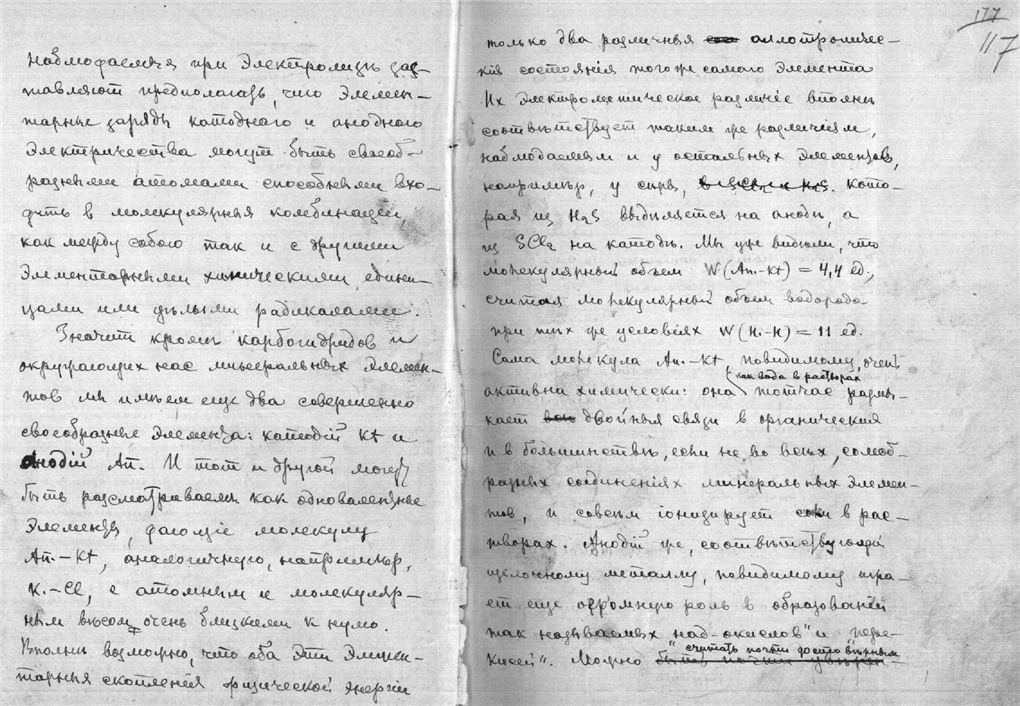 наблюдаемыя при Электролизѣ зас-
тавляют предполагать, что Элемен-
тарные заряды катодного и анодного
Электричества могут быть своеоб-
разными атомами способными вхо-
дить в молекулярныя комбинации
как между собою так и с другими
Элементарными химическими едини-
цами или цѣлыми радикалами.
Значит кромѣ карбогидридов и
окружающих нас минеральных Элемен-
тов мы имѣем еще два совершенно
своеобразные Элемента: катодій Kt и
Анодій An. И тот и другой могут
быть разсматриваемы как одновалентные
Элементы, дающіе молекулу
An.–Kt, аналогичную, например,
K.–Cl, с атомным и молекуляр-
ным вѣсом очень близкими к нулю.
Вполнѣ возможно, что оба Эти Элемен-
тарныя скопленія физической Энергіи
177
117
только два различныя аллотропичес-
кія состоянія того же самаго Элемента
Их Электрометическое различіе вполнѣ
соотвѣтствует таким же различіям,
наблюдаемым и у остальных Элементов,
например, у сѣры, кото-
рая из H₂S выдѣляется на анодѣ, а
из SCl₂ на катодѣ. Мы уже видѣли, что
молекулярный объем W(An.-Kt) = 4,4 ед.,
считая молекулярный объем водорода
при тѣх же условіях W(H.-H) = 11 ед.
Сама молекула An.-Kt повидимому, очень
как вода в растворах
активна химически: она тотчас размы-
кает двойныя связи в органических
и в большинствѣ, если не во всѣх, солеоб-
разных соединеніях минеральных Элемен-
тов, и совсем іонизирует в рас-
творах. Анодій же, соотвѣтствующій
щелочному металлу, повидимому игра-
ет еще огромную роль в образованіи
так называемых „над-окислов" и „пере-
кисей". Можно считать почти достовѣрным